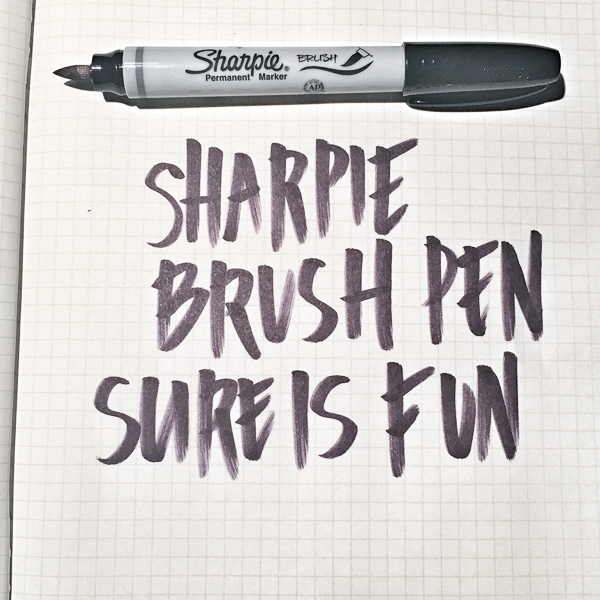 Sharpie®
Permanent Marker
BRUSH
AP
SHARPIE
BRUSH PEN
SURE IS FUN